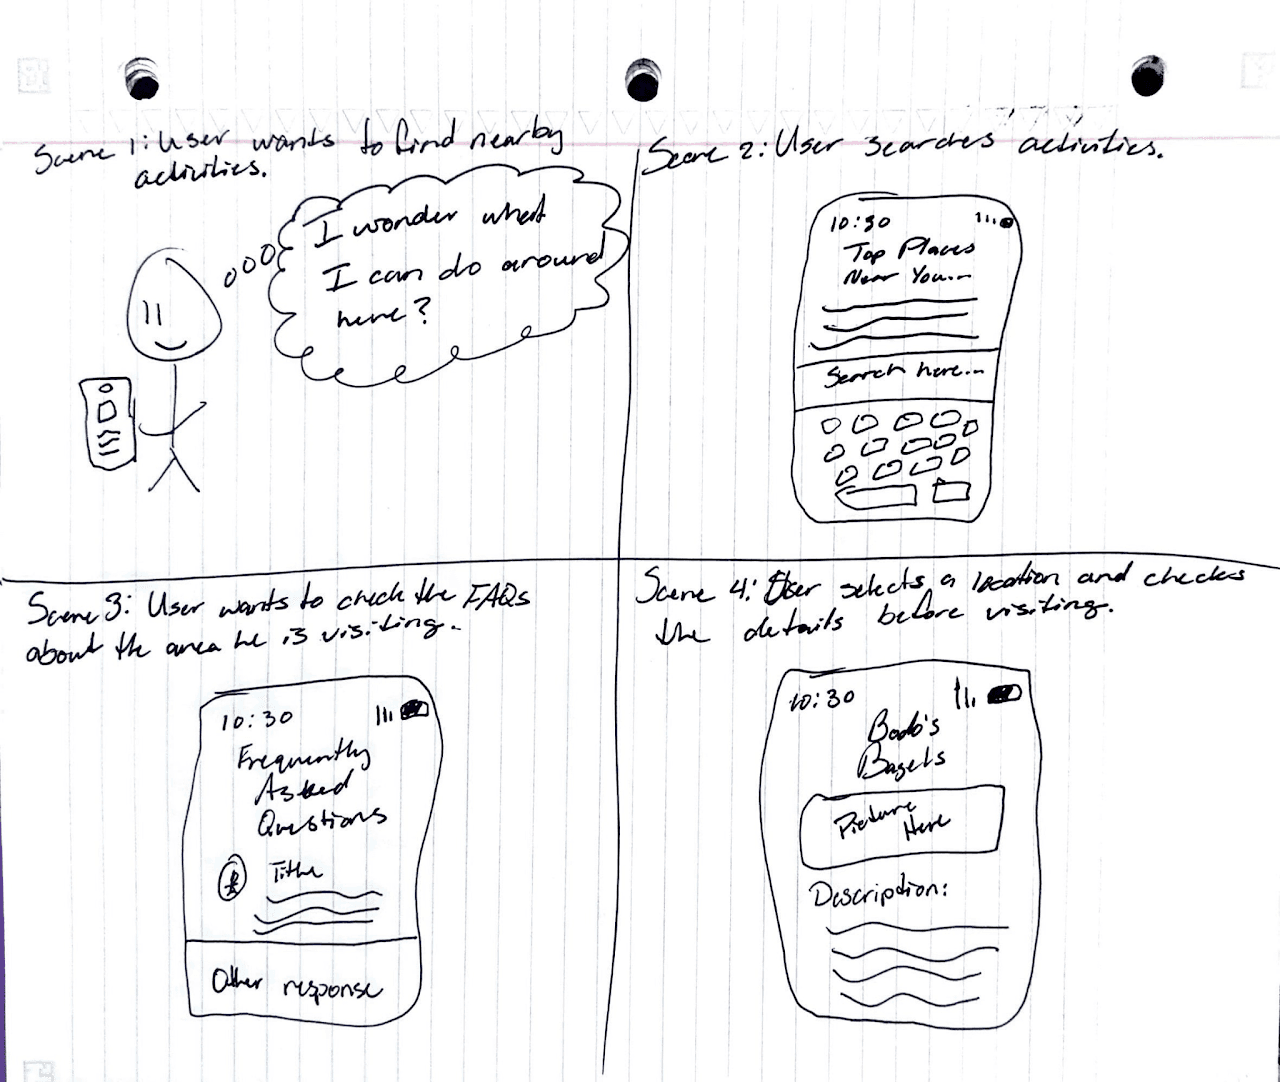 Scene 1: User wants to find nearby
activities.
I wonder what
I can do around
here?
Scene 2: User searches activities.
10:30
Top Places
Near You...
Search here...
Scene 3: User wants to check the FAQs
about the area he is visiting.
10:30
Frequently
Asked
Questions
Title
Other response
Scene 4: User selects a location and checks
the details before visiting.
10:30
Bodo's
Bagels
Picture
Here
Description: